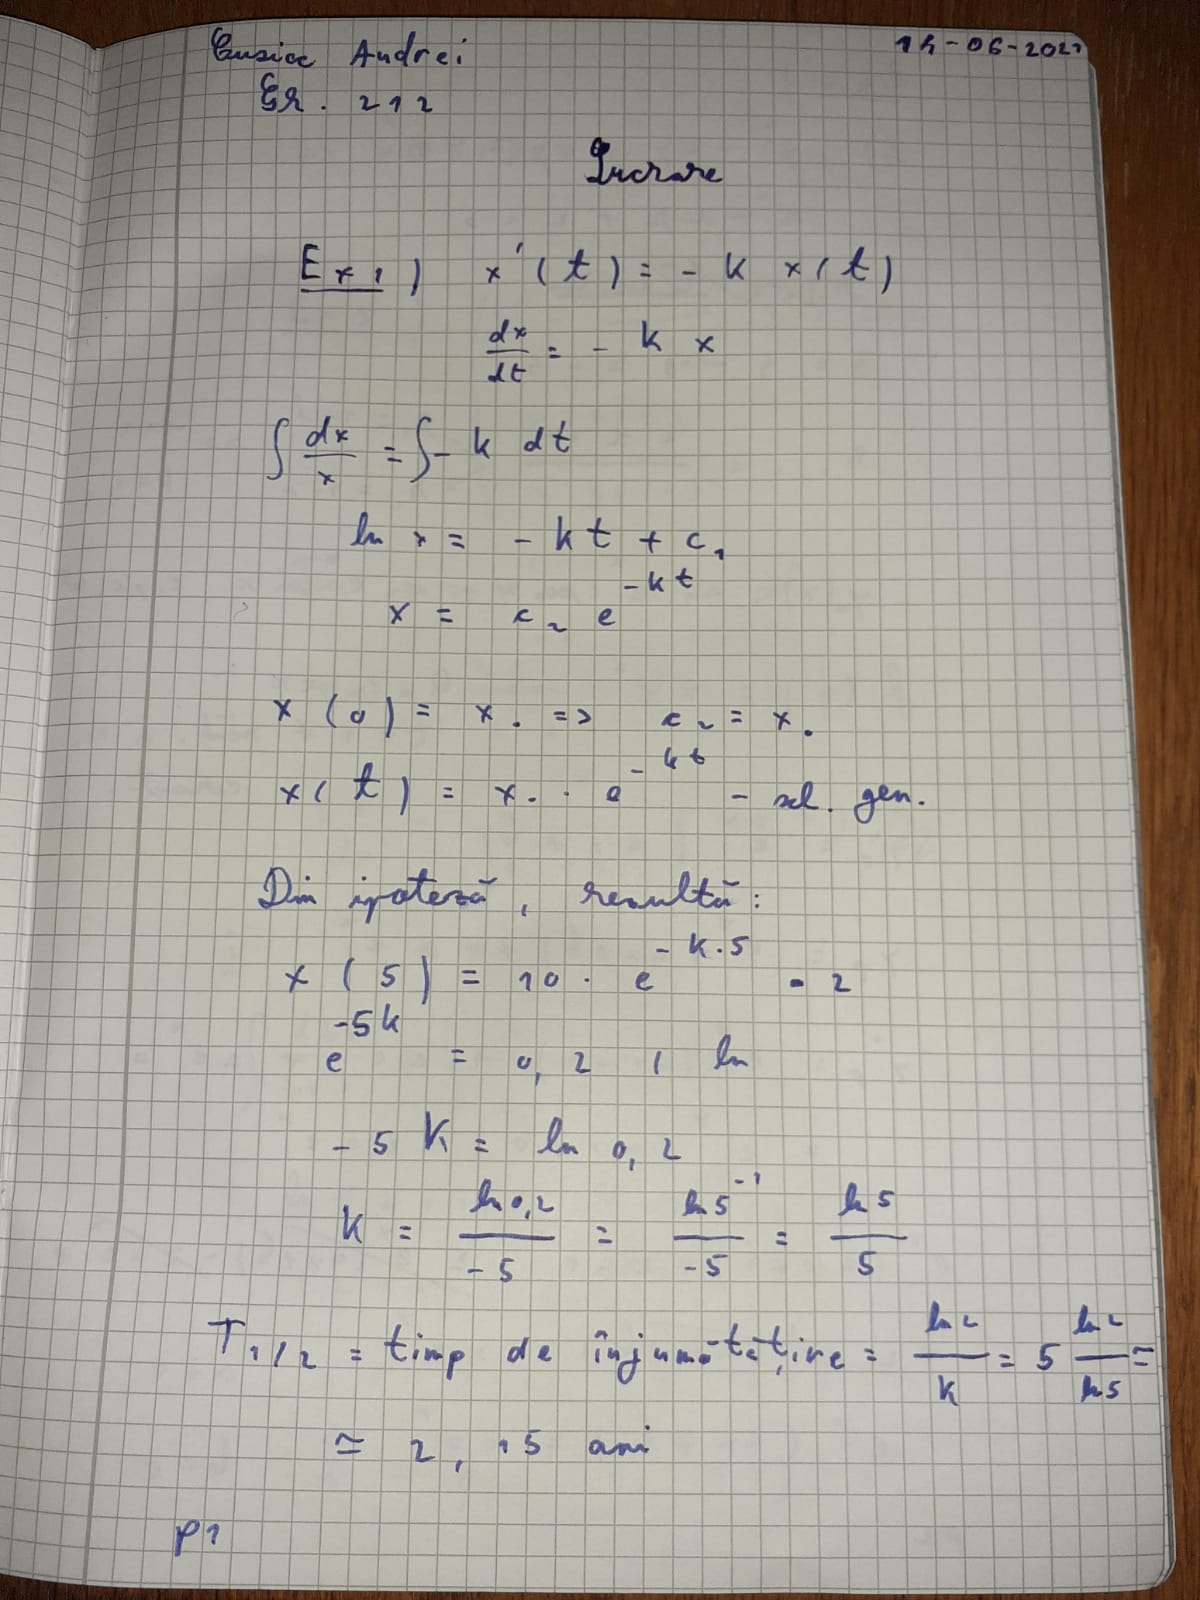 Andrei
14-06-202
Gr. 212
Lucrare
Ex 1) x'(t) = - k x(t)
dx/dt = - k x
∫ dx/x = ∫ - k dt
ln x = - kt + c₁
x = c₂ e^(-kt)
x(0) = x₀ => c₂ = x₀
x(t) = x₀ · e^(-kt) - sol. gen.
Din ipoteză, rezultă:
x(5) = 10 · e^(-k·5) = 2
e^(-5k) = 0,2 | ln
- 5 K = ln 0,2
K = ln 0,2 / -5 = ln 5^(-1) / -5 = ln 5 / 5
T₁/₂ = timp de înjumătățire = ln 2 / k = 5 ln 2 / ln 5 ≃
≃ 2,15 ani
p1